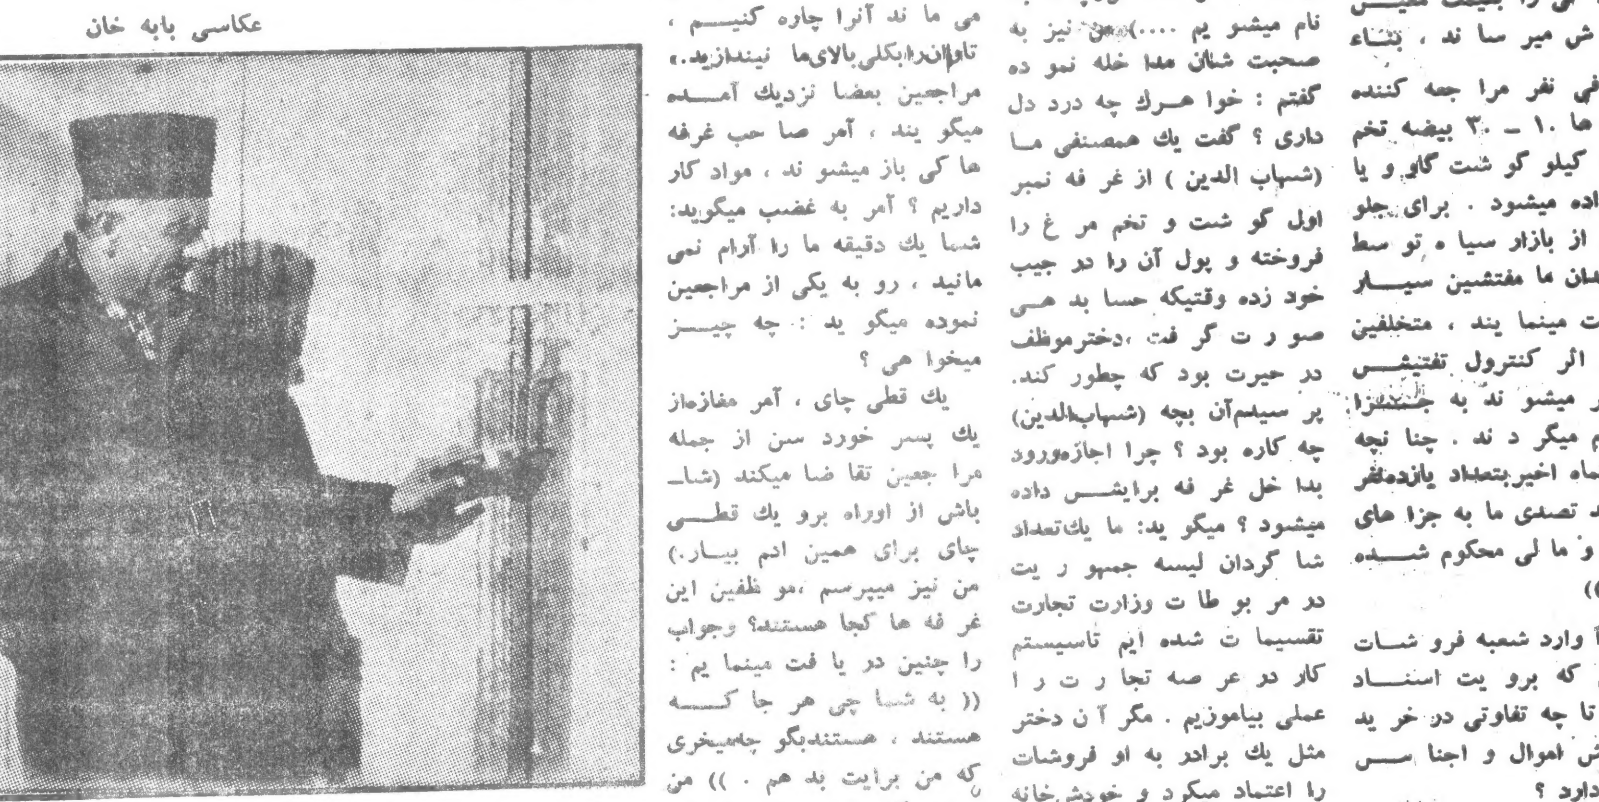 ش میر سا ند ، بناء
فی نفر مرا جعه کننده
ها ۱۰ – ۳۰ بیضه تخم
کیلو گو شت گاو و یا
اده میشود . برای جلو
از بازار سیا ه تو سط
دان ما مفتشین سیـــار
ت مینما یند ، متخلفین
اثر کنترول تفتیشــس
ر میشو ند به جــــزا
م میگر د ند . چنا نچه
ماه اخیر بتعداد یازده نفر
د تصدی ما به جزا های
و ما لی محکوم شـــده
))
آ وارد شعبه فرو شـات
که برو یت اسنـــاد
تا چه تفاوتی در خر ید
ش اموال و اجنا ســس
دارد ؟
نام میشو یم ....)) من نیز به
صحبت شان مدا خله نمو ده
گفتم : خوا هــرك چه درد دل
داری ؟ گفت یك همصنفی مــا
(شهاب الدین ) از غر فه نمبر
اول گو شت و تخم مر غ را
فروخته و پول آن را در جیب
خود زده وقتیکه حسا بد هــی
صو ر ت گر فت ،دخترموظف
در حیرت بود که چطور کند.
پر سیدم آن بچه (شهاب‌الدین)
چه کاره بود ؟ چرا اجازه ورود
بدا خل غر فه برایشــس داده
میشود ؟ میگو ید: ما یك تعداد
شا گردان لیسه جمهو ر یت
در مر بو طا ت وزارت تجارت
تقسیما ت شده ایم تاسیستم
کار در عر صه تجا ر ت ر ا
عملی بیاموزیم . مگر آ ن دختر
مثل یك برادر به او فروشات
را اعتماد میکرد و خودش خانه
می ما ند آنرا چاره کنیــم ،
تاوان را بکلی بالای ما نیندازید.»
مراجعین بعضا نزدیك آمـــده
میگو یند ، آمر صا حب غرفه
ها کی باز میشو ند ، مواد کار
داریم ؟ آمر به غضب میگوید:
شما یك دقیقه ما را آرام نمی
مانید ، رو به یکی از مراجعین
نموده میگو ید : چه چیــــز
میخوا هی ؟
یك قطی چای ، آمر مغازه از
یك پسر خورد سن از جمله
مرا جعین تقا ضا میکند (شا‌ـ
باش از اوراه برو یك قطـــی
چای برای همین ادم بیــار.)
من نیز میپرسم ،مو ظفین این
غر فه ها کجا هستند؟ وجواب
را چنین در یا فت مینما یم :
(( به شما چی هر جا کـــــه
هستند ، هستند بگو چه میخری
که من برایت بد هم . )) من
عکاسی بابه خان